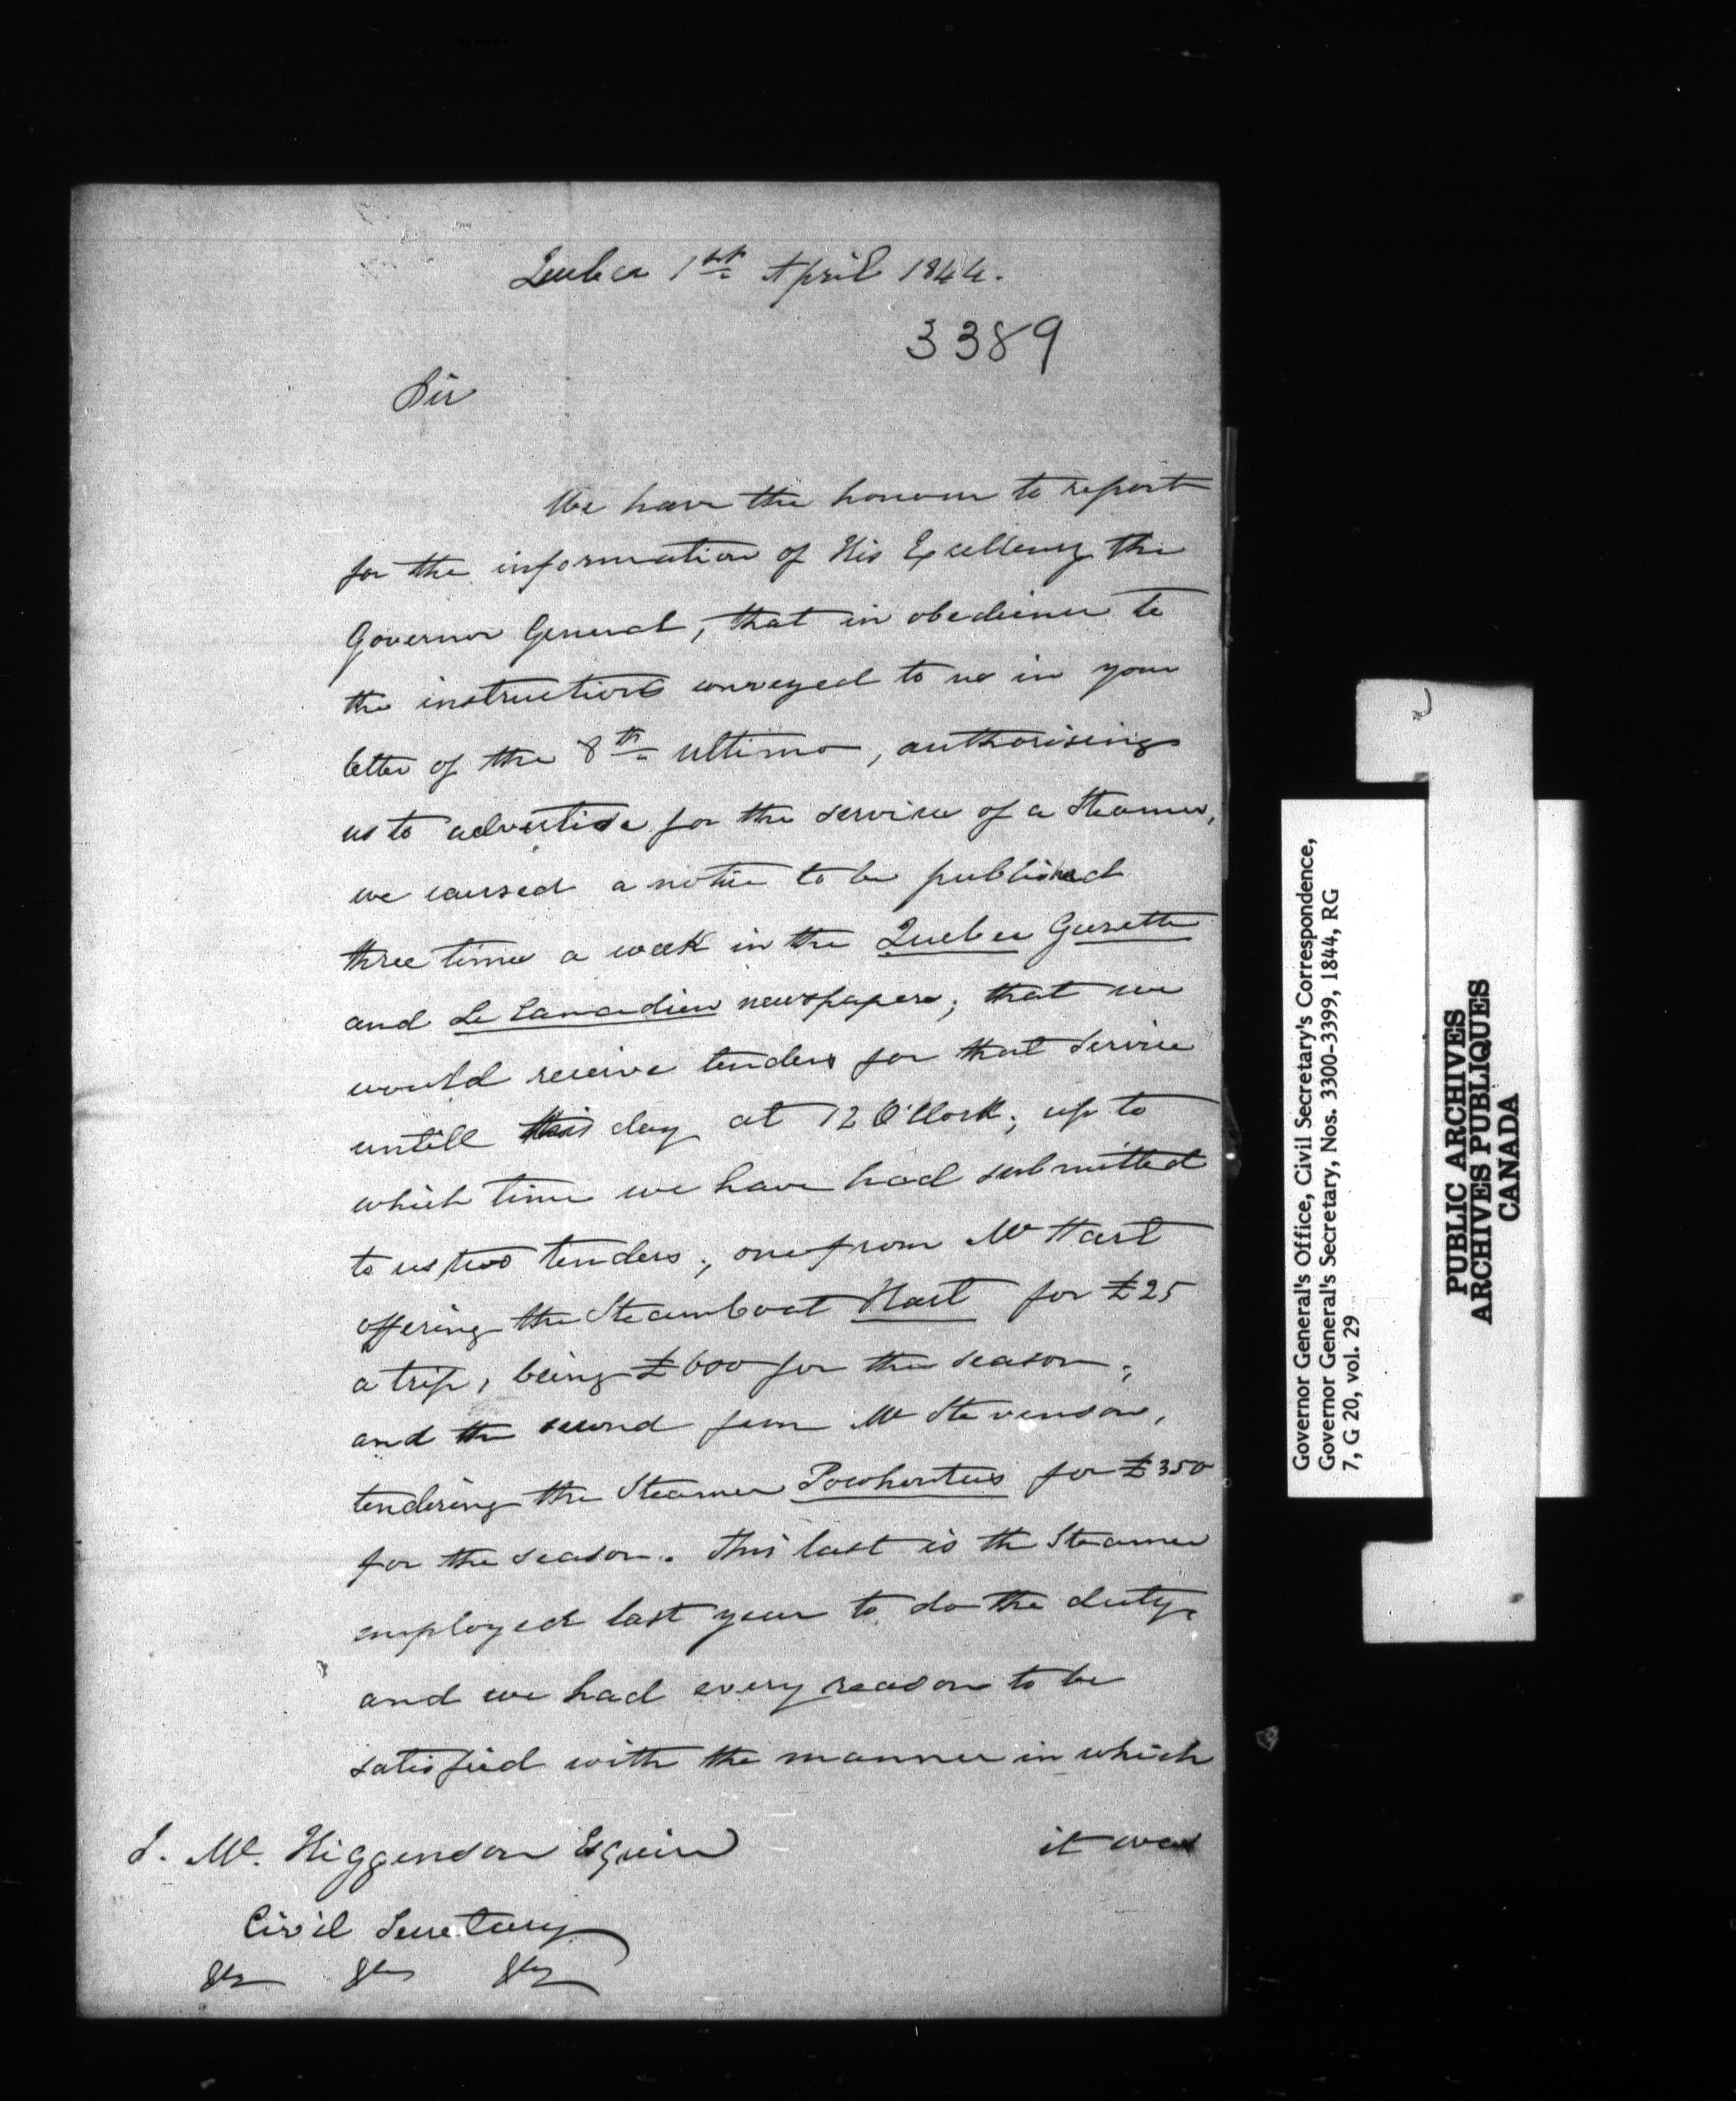 Quebec 1st April 1844.
3389
Sir
We have the honour to report
for the information of His Excellency the
Governor General, that in obedience to
the instructions conveyed to us in your
letter of the 8th ultimo, authorising
us to advertise for the service of a Steamer,
we caused a notice to be published
three times a week in the Quebec Gazette
and Le Canadien newspapers; that we
would receive tenders for that service
untill this day at 12 O'Clock; up to
which time we have had submitted
to us two tenders; one from Mr Hart
offering the Steamboat Hart for £25
a trip, being £600 for the season;
and the second from Mr Stevenson,
tendering the Steamer Pocohontus for £350
for the season. This last is the Steamer
employed last year to do the duty,
and we had every reason to be
satisfied with the manner in which
it was
J. M. Higgenson Esquire
Civil Secretary
&c &c &c
Governor General's Office, Civil Secretary's Correspondence,
Governor General's Secretary, Nos. 3300-3399, 1844, RG
7, G 20, vol. 29
PUBLIC ARCHIVES
ARCHIVES PUBLIQUES
CANADA